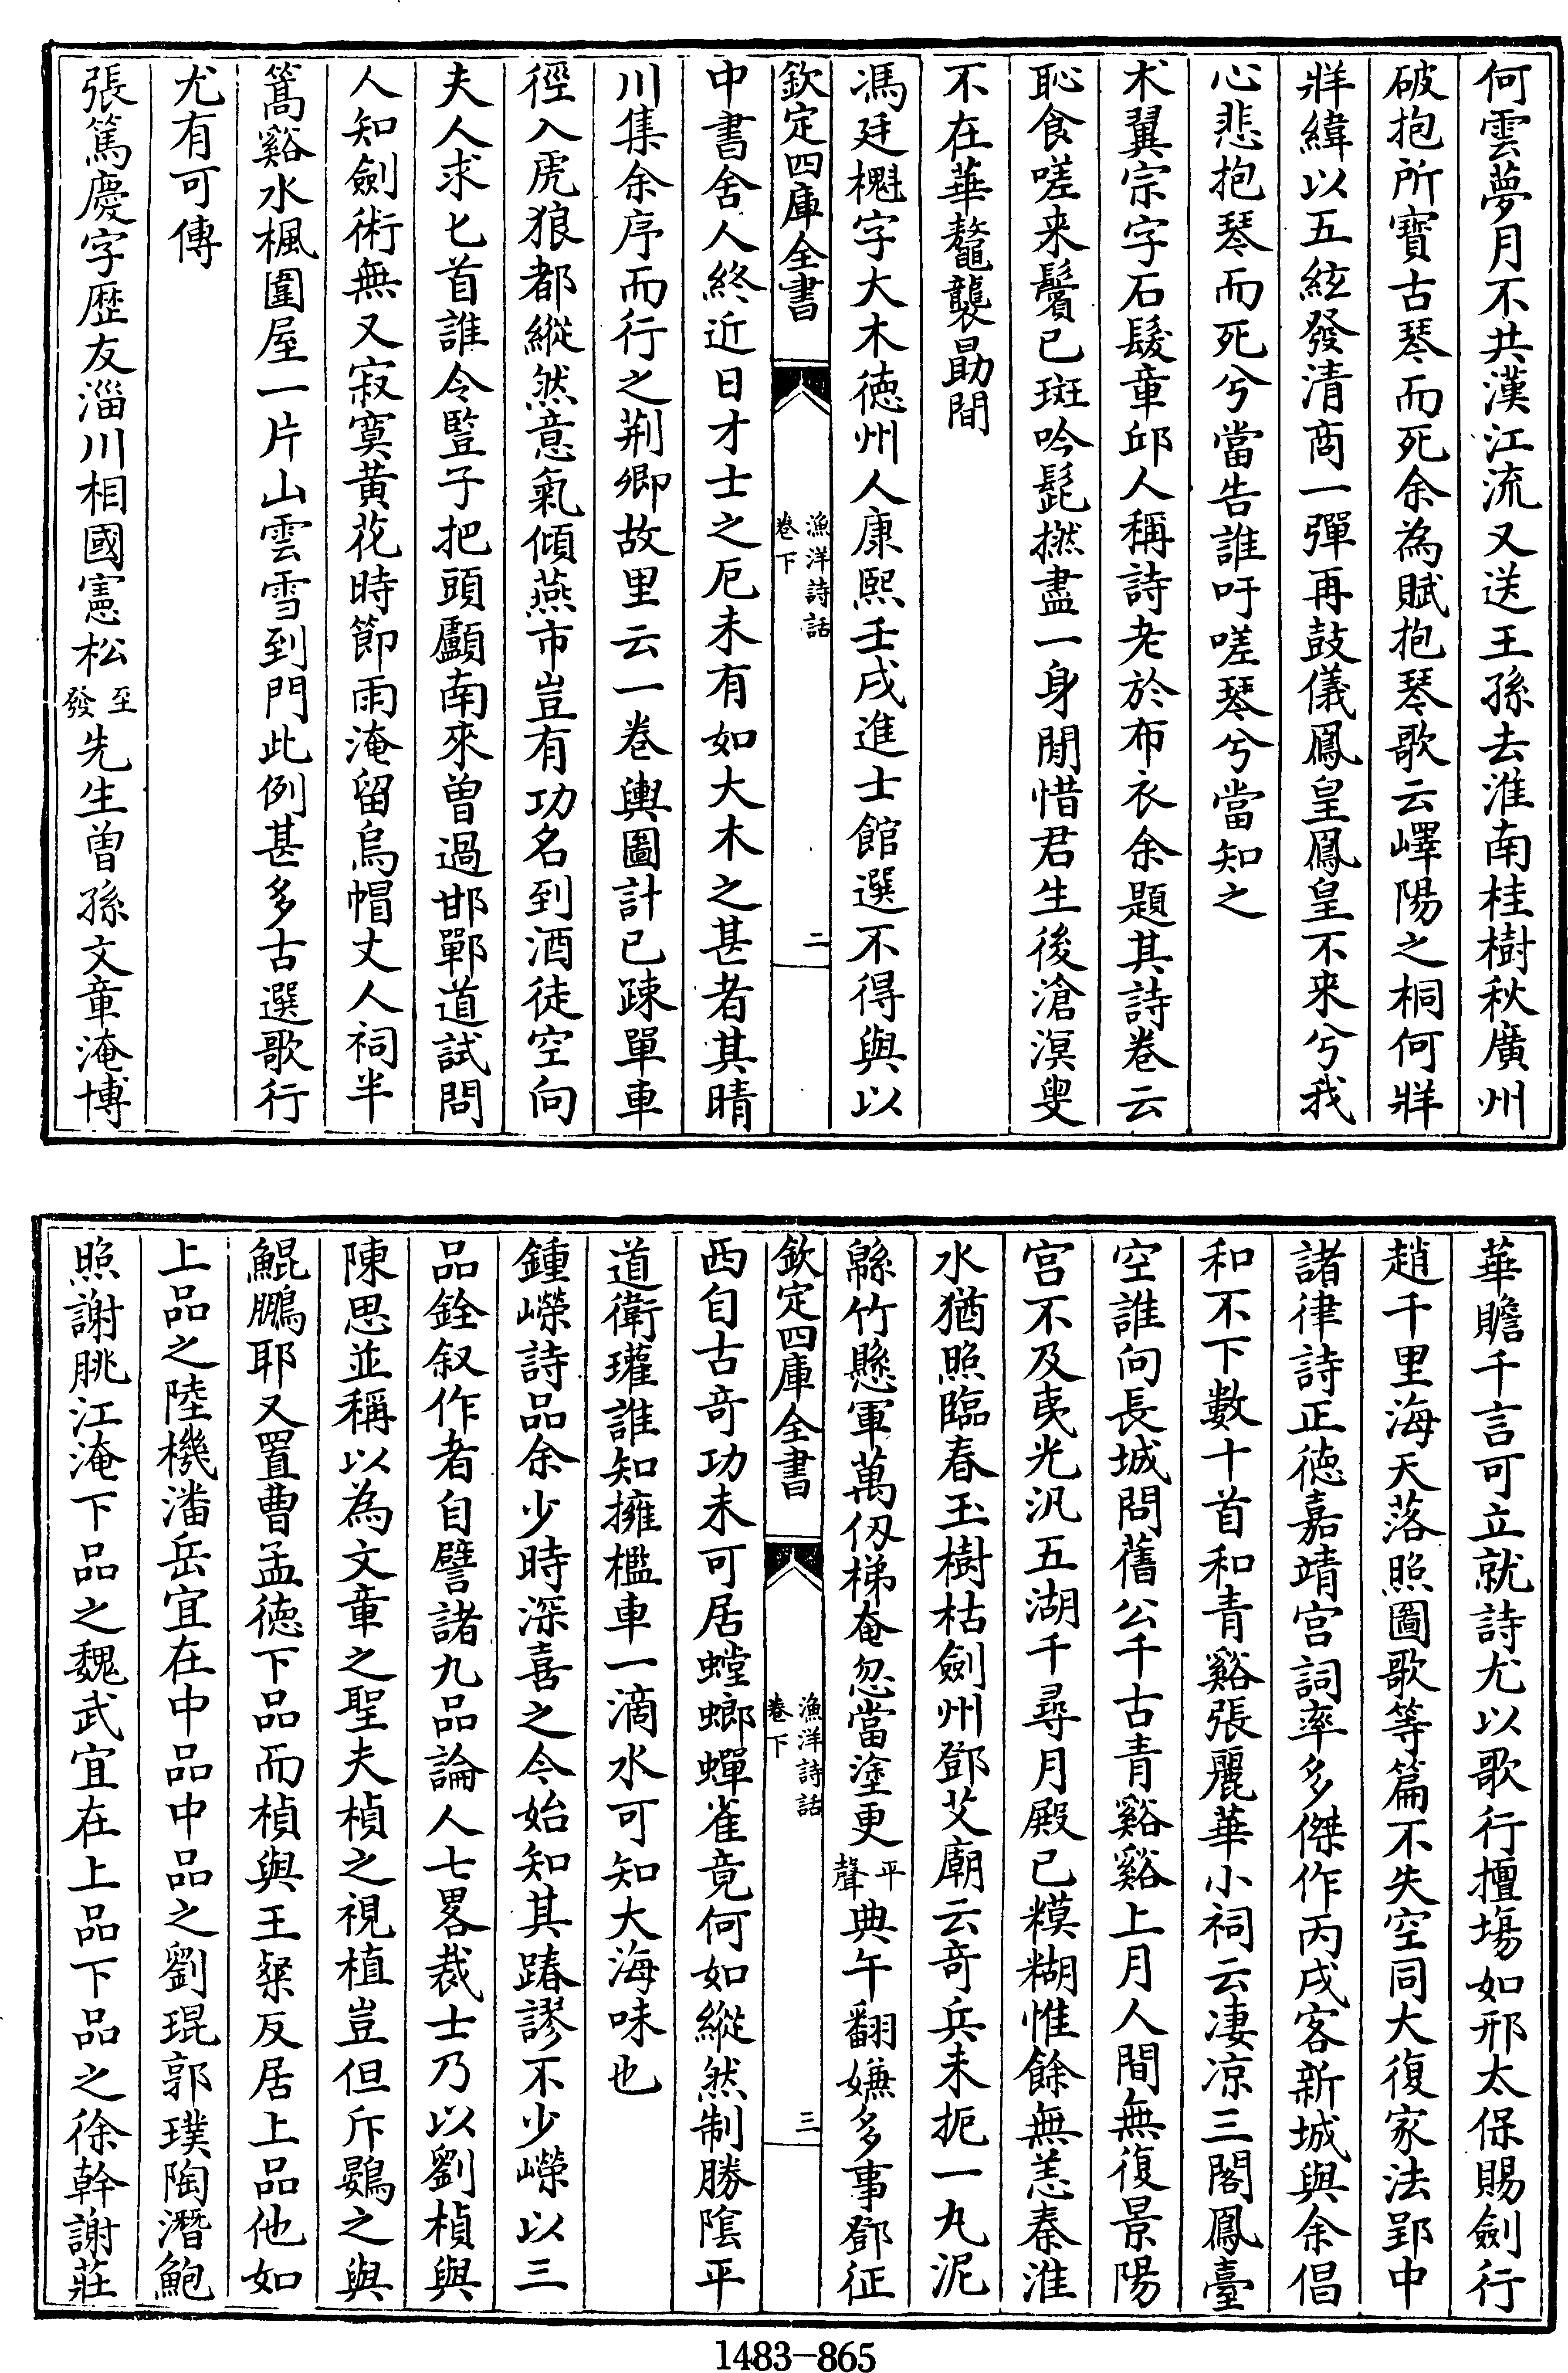 何雲夢月不共漢江流又送王孫去淮南桂樹秋廣州
破抱所寳古琴而死余為賦抱琴歌云嶧陽之桐何牂
牂緯以五絃發清商一彈再鼓儀鳳皇鳳皇不来兮我
心悲抱琴而死兮當告誰吁嗟琴兮當知之
术翼宗字石髪章邱人稱詩老於布衣余題其詩卷云
恥食嗟来鬢已斑吟髭撚盡一身閒惜君生後滄溟叟
不在華鼇襲勗間
馮廷櫆字大木徳州人康熙壬戌進士館選不得與以
欽定四庫全書
漁洋詩話
卷下
二
中書舍人終近日才士之厄未有如大木之甚者其晴
川集余序而行之荆卿故里云一卷輿圖計已踈單車
徑入虎狼都縱然意氣傾燕市豈有功名到酒徒空向
夫人求匕首誰令豎子把頭顱南來曽過邯鄲道試問
人知劍術無又寂寞黄花時節雨淹留烏帽丈人祠半
篙谿水楓圍屋一片山雲雪到門此例甚多古選歌行
尤有可傳
張篤慶字歴友淄川相國憲松至發先生曽孫文章淹博
華贍千言可立就詩尤以歌行擅塲如邢太保賜劍行
趙千里海天落照圖歌等篇不失空同大復家法郢中
諸律詩正徳嘉靖宫詞率多傑作丙戌客新城與余倡
和不下數十首和青谿張麗華小祠云凄凉三閣鳳臺
空誰向長城問舊公千古青谿谿上月人間無復景陽
宫不及夷光汎五湖千尋月殿已糢糊惟餘無恙秦淮
水猶照臨春玉樹枯劍州鄧艾廟云竒兵未扼一丸泥
緜竹懸軍萬仭梯奄忽當塗更平聲典午翻嫌多事鄧征
欽定四庫全書
漁洋詩話
卷下
三
西自古竒功未可居螳螂蟬雀竟何如縱然制勝隂平
道衛瓘誰知擁檻車一滴水可知大海味也
鍾嶸詩品余少時深喜之今始知其踳謬不少嶸以三
品銓叙作者自譬諸九品論人七畧裁士乃以劉楨與
陳思並稱以為文章之聖夫楨之視植豈但斥鷃之與
鯤鵬耶又置曹孟徳下品而楨與王粲反居上品他如
上品之陸機潘岳宜在中品中品之劉琨郭璞陶潛鮑
照謝朓江淹下品之魏武宜在上品下品之徐幹謝莊
1483-865